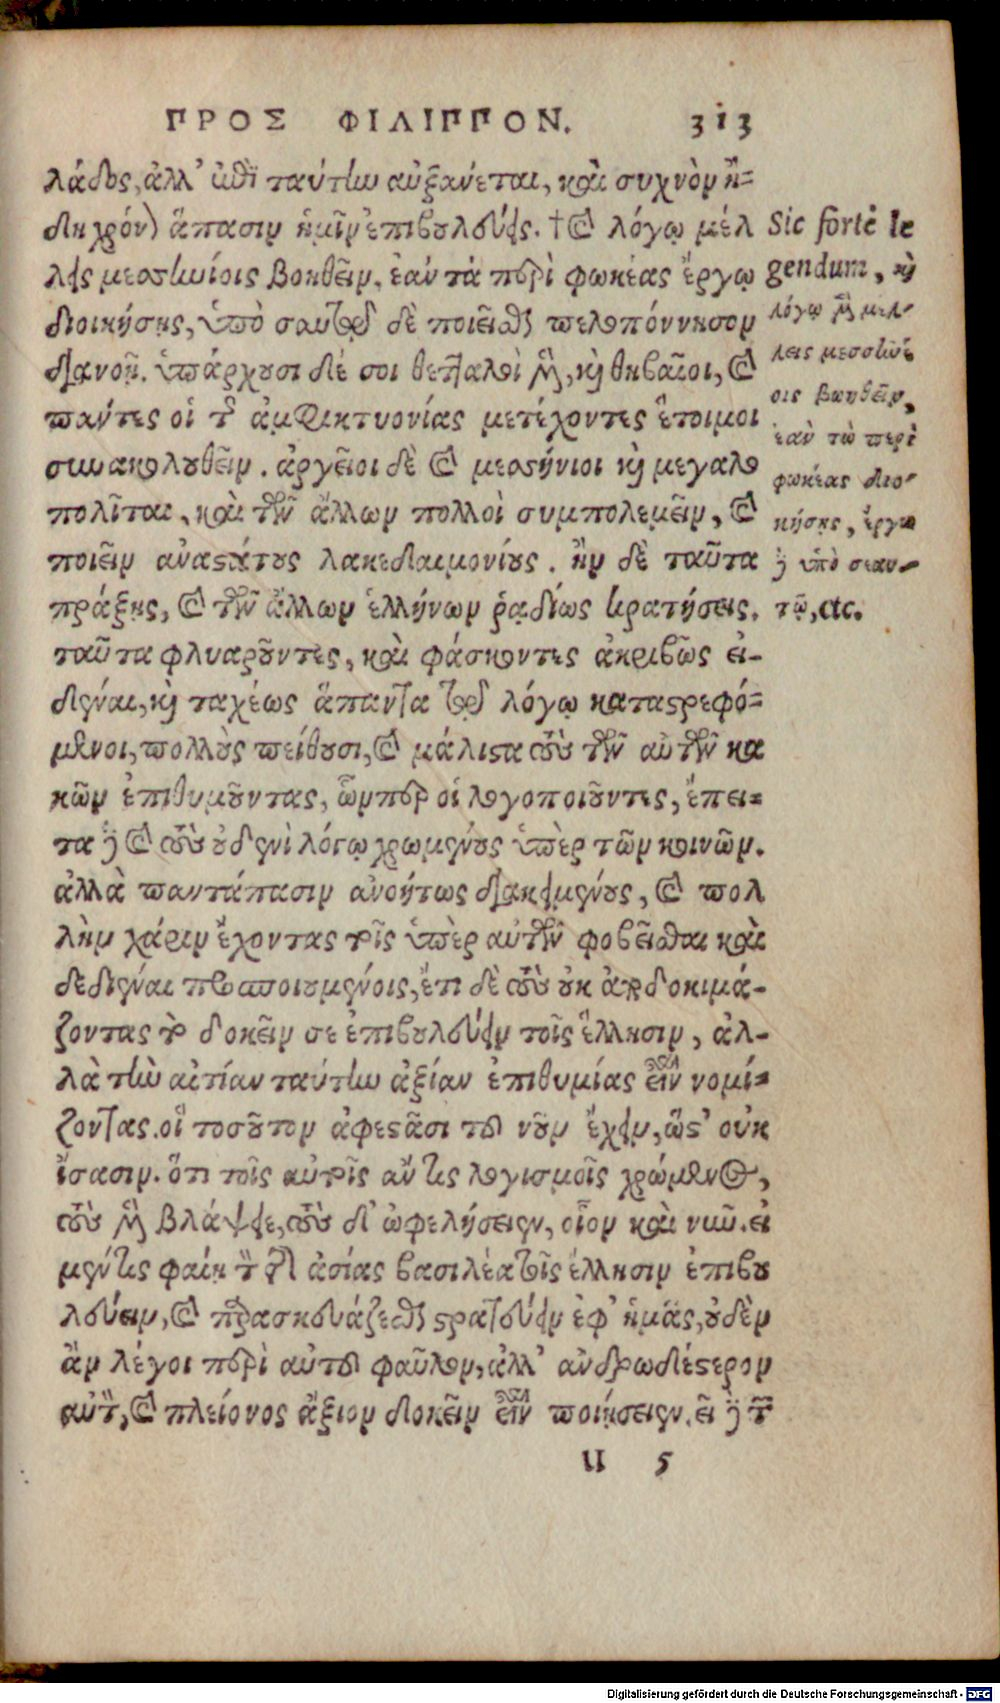 ΠΡΟΣ ΦΙΛΙΠΠΟΝ. 313
λάδος, ἀλλ' ἐπὶ ταύτην αὐξάνεται, καὶ συχνὸν ἤ-
δη χρόνον ἅπασιν ἡμῖν ἐπιβουλεύεις. † καὶ λόγῳ μέλ
λεις μεσσηνίοις βοηθεῖν, ἐὰν τὰ περὶ φωκέας ἔργῳ
διοικήσῃς, ὑπὸ σαυτῷ δὲ ποιεῖσθαι πελοπόννησον
διανοῇ. ὑπάρχουσι δέ σοι θετταλοὶ μὲν, καὶ θηβαῖοι, καὶ
πάντες οἱ τῆς ἀμφικτυονίας μετέχοντες ἕτοιμοι
συνακολουθεῖν. ἀργεῖοι δὲ καὶ μεσσήνιοι καὶ μεγαλο
πολῖται, καὶ τῶν ἄλλων πολλοὶ συμπολεμεῖν, καὶ
ποιεῖν ἀναστάτους λακεδαιμονίους. ἢν δὲ ταῦτα
πράξῃς, καὶ τῶν ἄλλων ἑλλήνων ῥᾳδίως κρατήσεις.
ταῦτα φλυαροῦντες, καὶ φάσκοντες ἀκριβῶς εἰ-
δέναι, καὶ ταχέως ἅπαντα τῷ λόγῳ καταστρεφό-
μενοι, πολλοὺς πείθουσι, καὶ μάλιστα τοὺς τῶν αὐτῶν κα
κῶν ἐπιθυμοῦντας, ὧνπερ οἱ λογοποιοῦντες, ἔπει-
τα δὲ καὶ τοὺς οὐδενὶ λόγῳ χρωμένους ὑπὲρ τῶν κοινῶν.
ἀλλὰ παντάπασιν ἀνοήτως διακειμένους, καὶ πολ
λὴν χάριν ἔχοντας τοῖς ὑπὲρ αὐτῶν φοβεῖσθαι καὶ
δεδιέναι προσποιουμένοις, ἔτι δὲ τοὺς οὐκ ἀποδοκιμά-
ζοντας τὸ δοκεῖν σε ἐπιβουλεύειν τοῖς ἕλλησιν, ἀλ-
λὰ τὴν αἰτίαν ταύτην ἀξίαν ἐπιθυμίας εἶναι νομί-
ζοντας. οἳ τοσοῦτον ἀφεστᾶσι τοῦ νοῦν ἔχειν, ὥστ' οὐκ
ἴσασιν. ὅτι τοῖς αὐτοῖς ἄν τις λογισμοῖς χρώμενος,
τοὺς μὲν βλάψειε, τοὺς δ' ὠφελήσειεν, οἷον καὶ νῦν. εἰ
μέν τις φαίη τὸν τῆς ἀσίας βασιλέα τοῖς ἕλλησιν ἐπιβου
λεύειν, καὶ παρασκευάζεσθαι στρατεύειν ἐφ' ἡμᾶς, οὐδὲν
ἂν λέγοι περὶ αὐτοῦ φαῦλον, ἀλλ' ἀνδρωδέστερον
αὐτὸν, καὶ πλείονος ἄξιον δοκεῖν εἶναι ποιήσειεν. εἰ δὲ τῶν
Sic fortè le
gendum, καὶ
λόγῳ μὲν μελ-
λεις μεσσηνί-
οις βοηθεῖν,
ἐὰν τὼ περὶ
φωκέας διο-
κήσῃς, ἔργῳ
δὲ ὑπὸ σεαυ-
τῷ, etc.
u 5
Digitalisierung gefördert durch die Deutsche Forschungsgemeinschaft - DFG